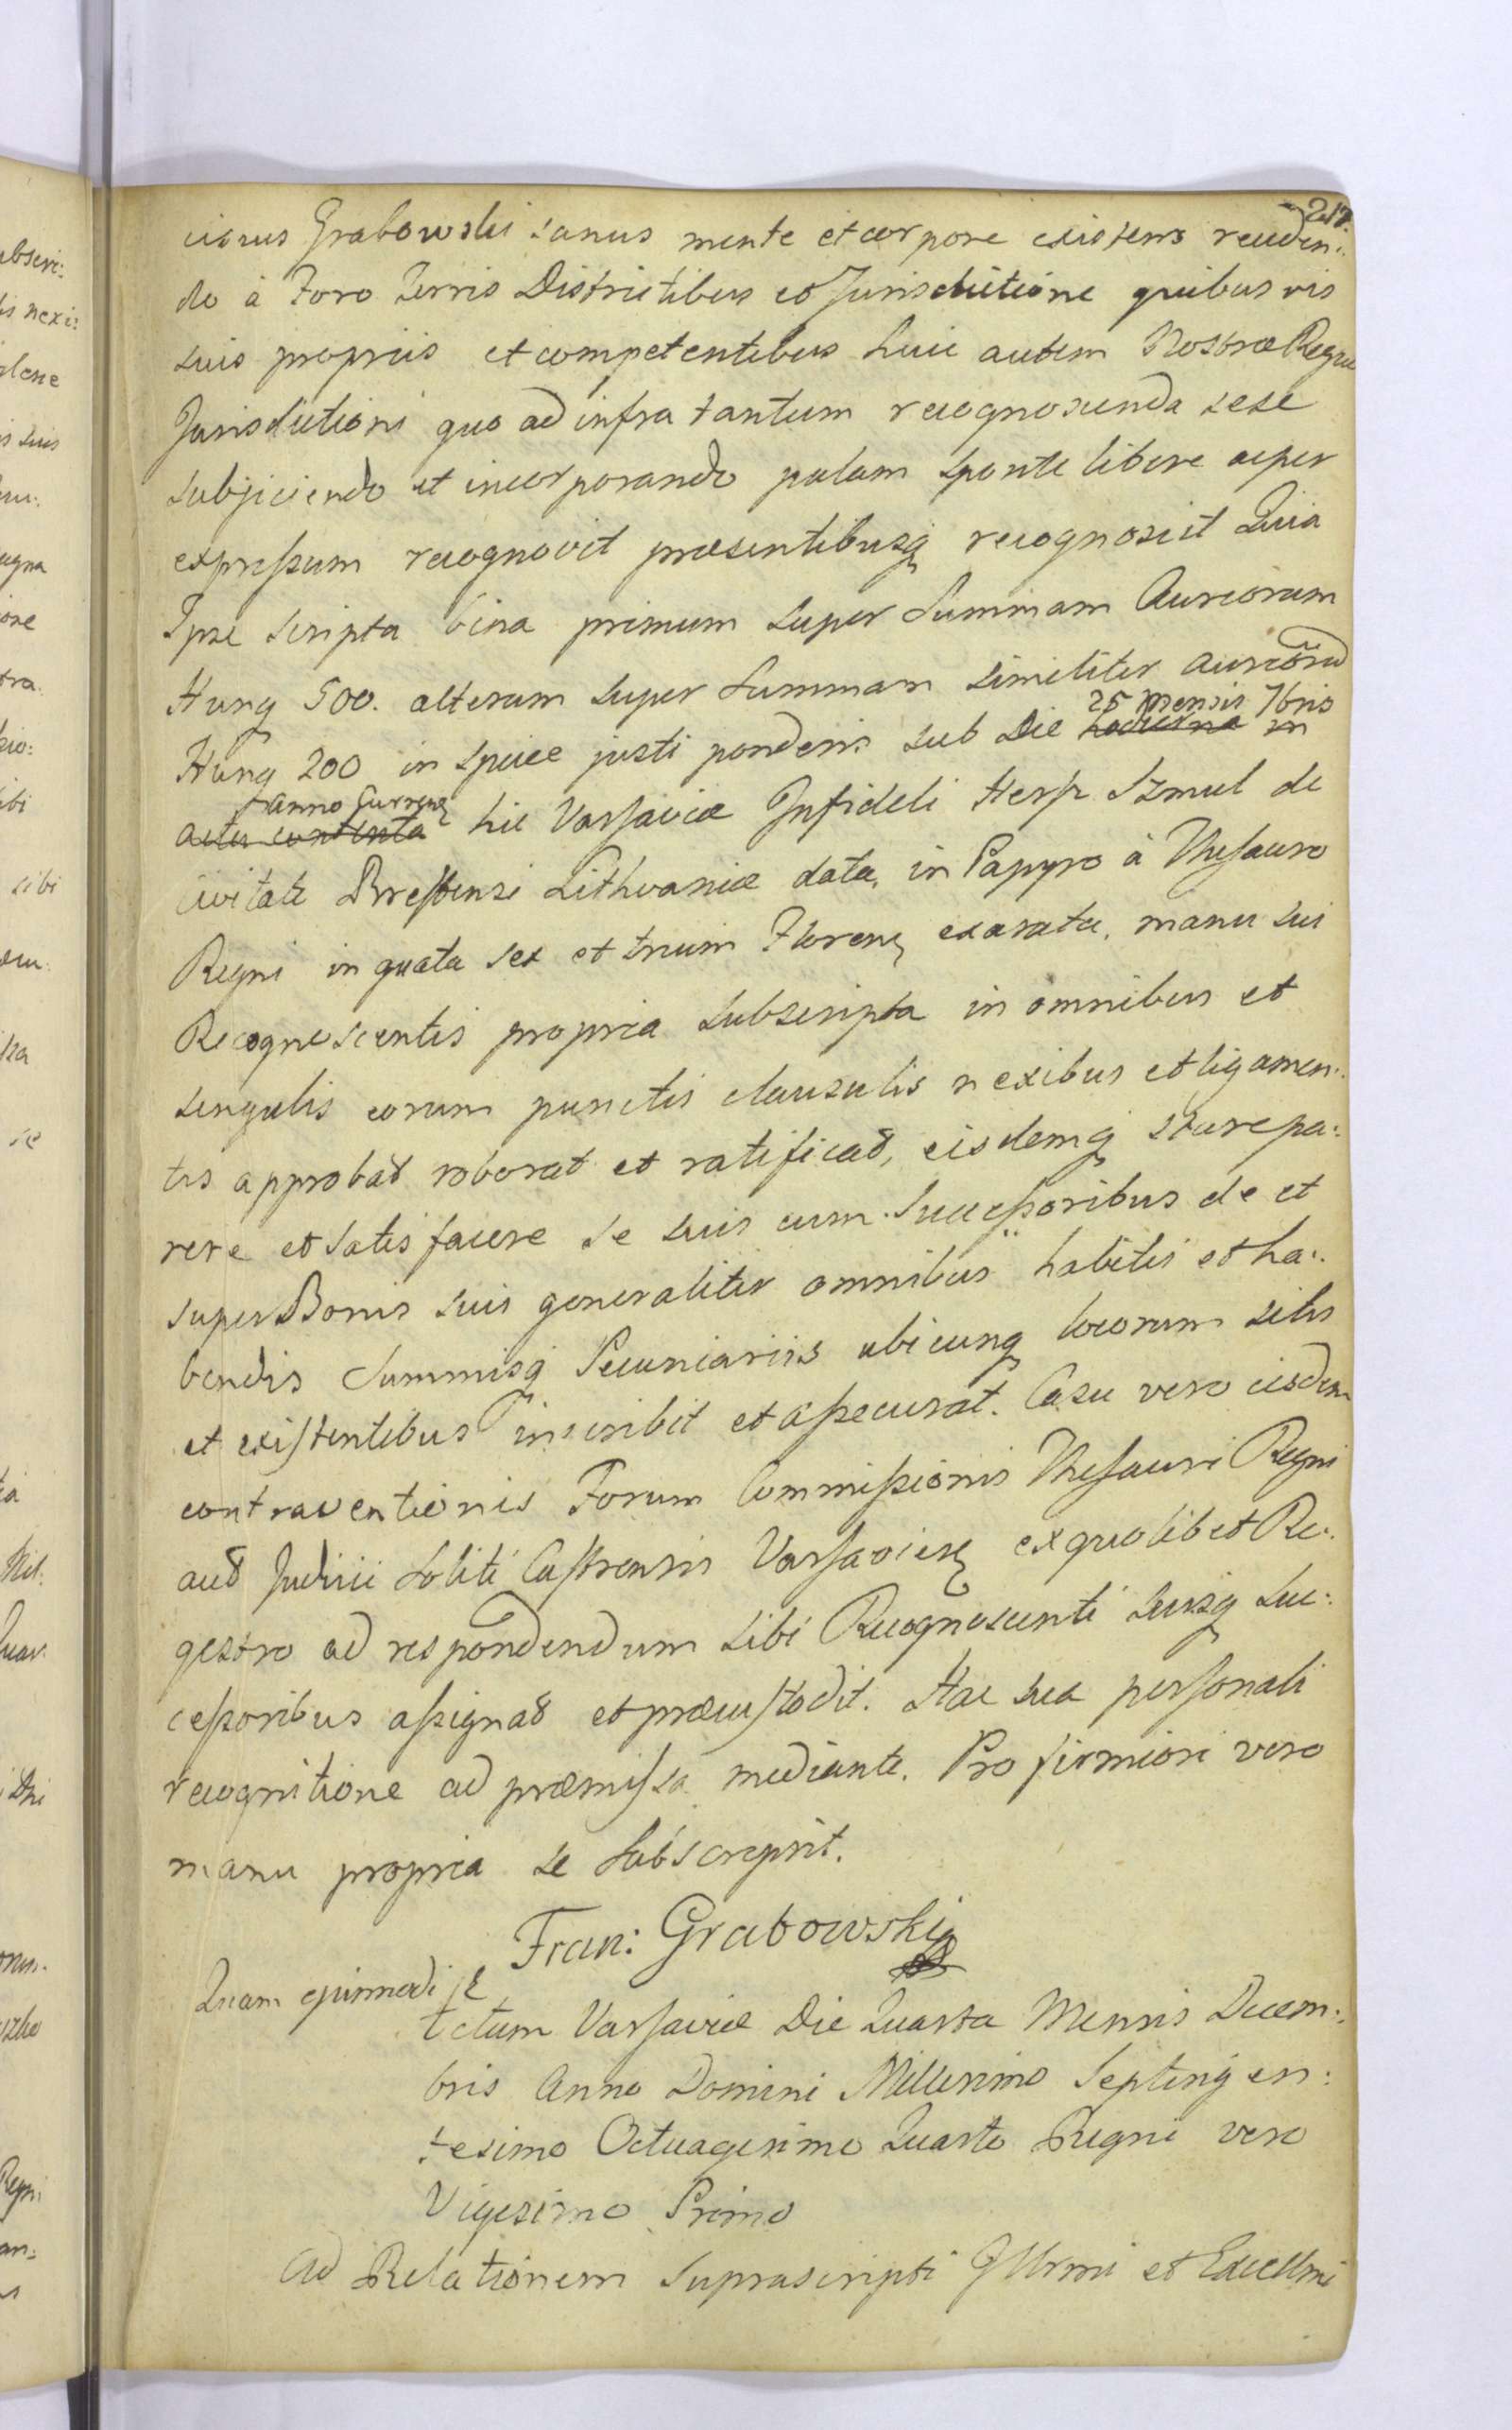 217.
ciscus Grabowski sanus mente et corpore existens receden:
do à Foro Terris Districtibus et Jurisdictione quibus vis
suis propriis et competentibus huic autem Nostræ Regiæ
Jurisdictioni quo ad infra tantum recognoscenda sese
subjiciendo et incorporando palam sponte libere ac per
expressum recognovit præsentibusq recognoscit Quia
Ipse scripta bina primum super Summam Aureorum
Hung 500. alterum super Summam similiter aureorũ
25 Mensis 7bris
Hung 200 in specie justi ponderis sub Die hodierna in
anno Curren
actu contenta hic Varsaviæ Infideli Hersz Szmul de
civitate Brestensi Lithvaniæ data, in Papyro à Thesauro
Regni in gnata sex et trium Floren exarata, manu sui
Recognoscentis propria subscripta in omnibus et
singulis eorum punctis clausulis nexibus et ligamen:
tis approbat roborat et ratificat, eisdemq stare pa:
rere et satisfacere se suis cum Successoribus de et
super Bonis suis generaliter omnibus habitis et ha:
bendis Summisq Pecuniariis ubicunq locorum sitis
et existentibus inscribit et assecurat. Casu vero eisdem
contraventionis Forum Commissionis Thesauri Regni
aut Judicii soliti Castrensis Varsavien ex quolibet Re:
gestro ad respondendum sibi Recognoscenti suisq Suc:
cessoribus assignat et præcustodit. Hac sua personali
recognitione ad præmissa mediante. Pro firmiori vero
manu propria se subscripsit.
Fran: Grabowski
Quam ejusmodi
Actum Varsaviæ Die Quarta Mensis Decem:
bris Anno Domini Millesimo Septingen:
tesimo Octuagesimo Quarto Regni vero
Vigesimo Primo
Ad Relationem Suprascripti Illrmi et Excellmi